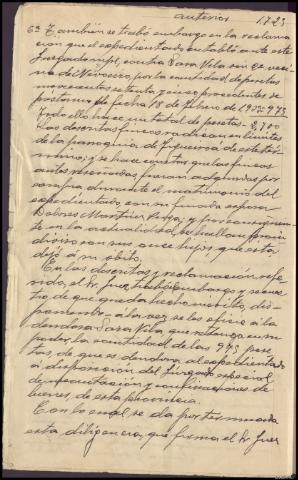 anterior 1723
6º Y también se trabó embargo en la reclama
ción que el expedientado entabló ante este
Juzgado mpl, contra Sara Vela veci
na de por la cantidad de pesetas
novecientas setenta y cinco procedentes de
préstamo de fecha 18 de Febrero de 1932= 975
Todo ello hace un total de pesetas- 8,700
Las descritas fincas radican en limites
de la parroquia de Figueiroá de este tér
mino; y se hace constar que las fincas
antes reseñadas fueron adquiridas por
compra durante el matrimonio del
expedientado, con su finada esposa
Dolores Martínez y por consiguien
te en la actualidad se hallan proin
diviso con sus once hijos, que esta
dejó a su óbito.
En las descritas y reclamación refe
rido, el Sr. Juez trabó embargo y secues
tro de que queda hecho mérito, dis
poniendo a la vez se les oficie a la
deudora Sara Vila que retenga en su
poder la cantidad de las 975 pese
tas, de que es deudora al expedientado
a disposición del Juzgado especial
de incautación y confiscaciones de
bienes, de esta provincia.
Con lo cual se da por terminada
esta diligencia, que firma el Sr Juez